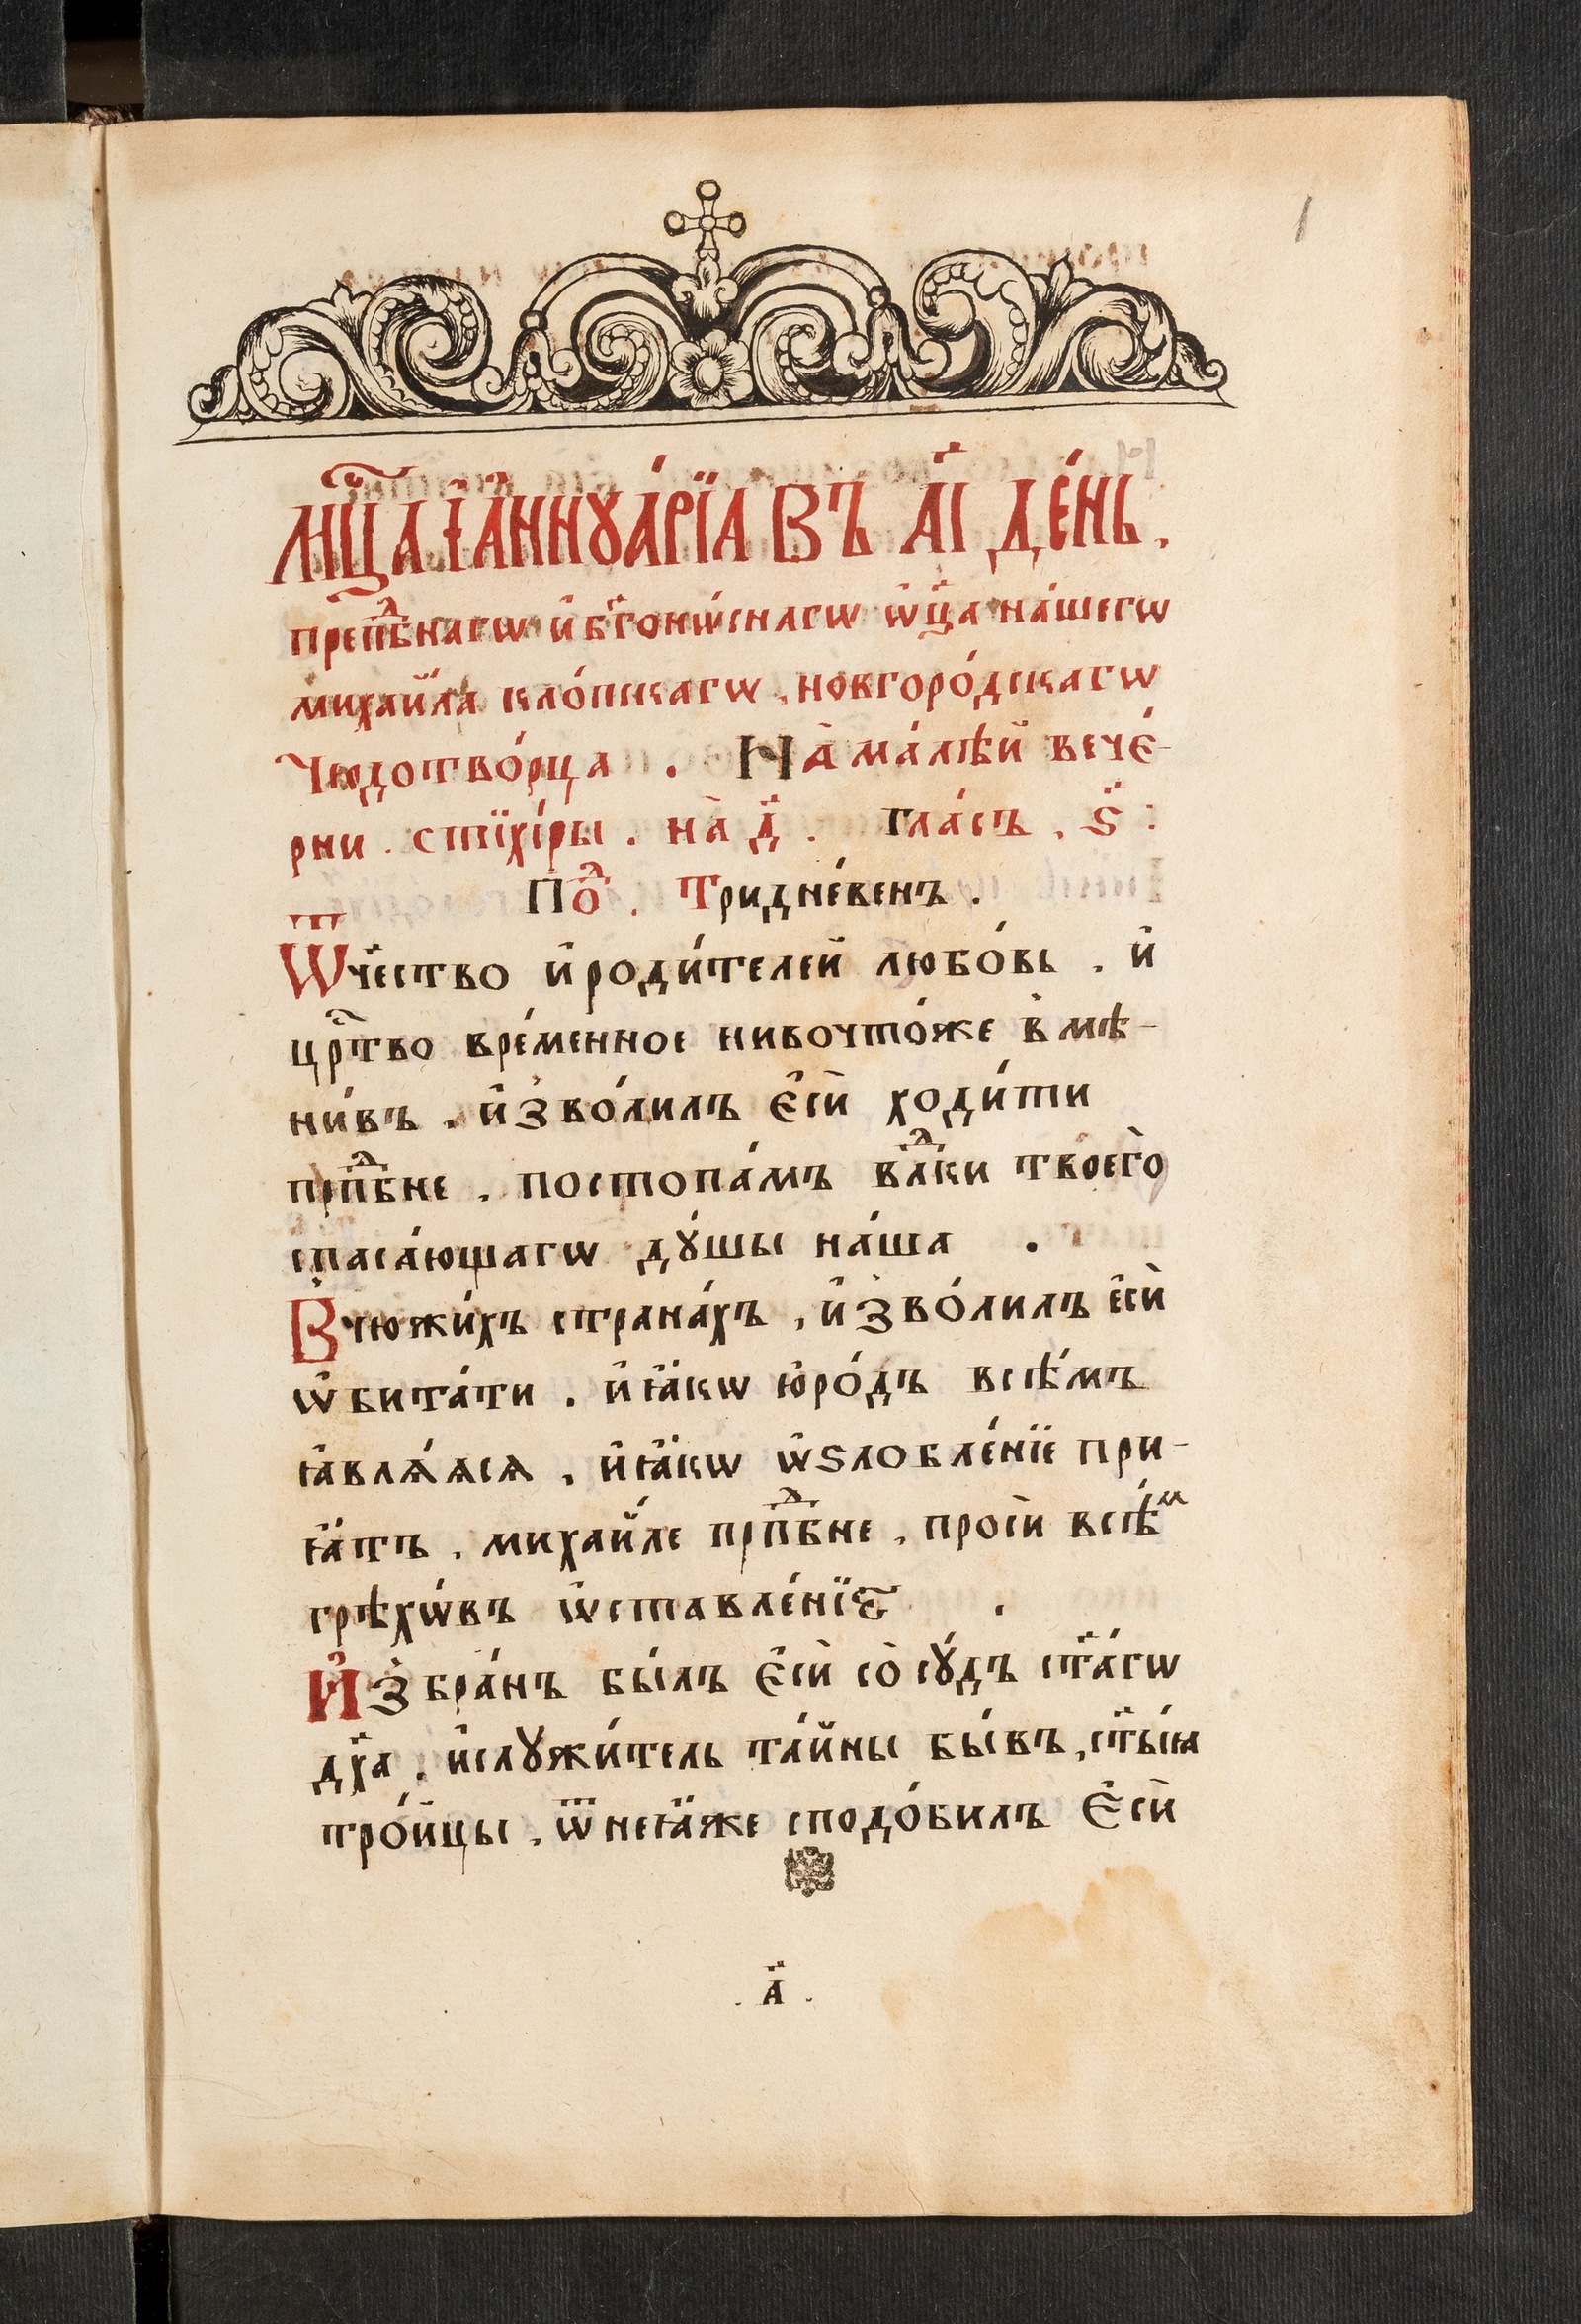 1
мц҃а і҆аннꙋа́рїа въ а҃і де́нь.
препⷣбнагѡ и҆ бг҃оно́снагѡ ѻ҆ц҃а на́шегѡ
михаи́ла кло́пскагѡ, новгоро́дскагѡ
чюдотво́рца . На̀ ма́лѣй вече́-
рни . стїхі́ры . на̀ д҃ . гла́съ , ѕ҃ :
Поⷣ . Тридне́венъ .
Ѿч҃ество и҆ роди́телей любо́вь . и҆
црⷭ҇тво вре́менное нивочто́же в̾мѣ-
ни́въ . и҆з̾во́лилъ є҆сѝ ходи́ти
прпⷣбне . постопа́мъ влⷣки твоего̀
спаса́ющагѡ дꙋ́шы на́ша .
В̾чюжи́хъ страна́хъ , и҆з̾во́лилъ є҆сѝ
ѡ҆бита́ти . и҆ ꙗ҆́кѡ ю҆ро́дъ всѣ́мъ
ꙗ҆влѧ́ѧсѧ , и҆ ꙗ҆́кѡ ѡ҆ѕлобле́нїе при-
ꙗ҆́тъ . михаи́ле прпⷣбне . просѝ всѣ́ⷨ
грѣхѡ́въ ѡ҆ставле́нїе .
И҆з̾бра́нъ бы́лъ є҆сѝ со̀сꙋ́дъ ст҃а́гѡ
дх҃а . и҆слꙋжи́тель та́йны бы́въ , ст҃ы́ꙗ
тро́йцы . ѿнеꙗ҆́же сподо́билъ є҆сѝ
. а҃ .